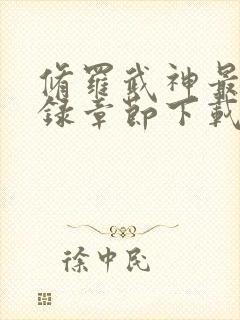 脩羅武神最
錄章節下載
徐中民